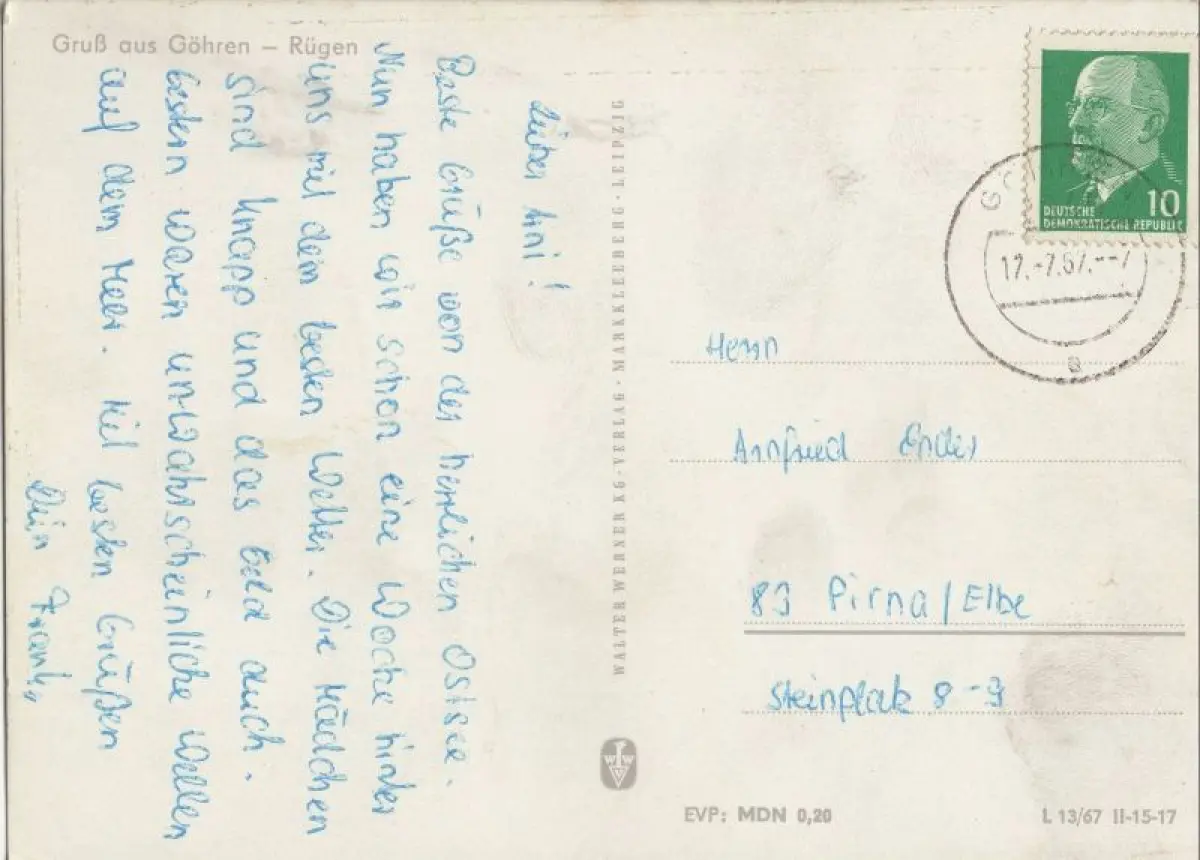 Gruß aus Göhren – Rügen
Lieber Arni!
Beste Grüße von der herrlichen Ostsee.
Nun haben wir schon eine Woche hinter
uns mit dem besten Wetter. Die Mädchen
sind knapp und das Geld auch.
Gestern waren unwahrscheinliche Wellen
auf dem Meer. Mit besten Grüßen
Dein Frank
WALTER WERNER KG · VERLAG · MARKKLEEBERG · LEIPZIG
DEUTSCHE
DEMOKRATISCHE REPUBLIK
10
17.-7.67.--7
e
Herrn
Arnfried
83 Pirna/Elbe
Steinplatz 8-9
WWV
EVP: MDN 0,20
L 13/67 II-15-17